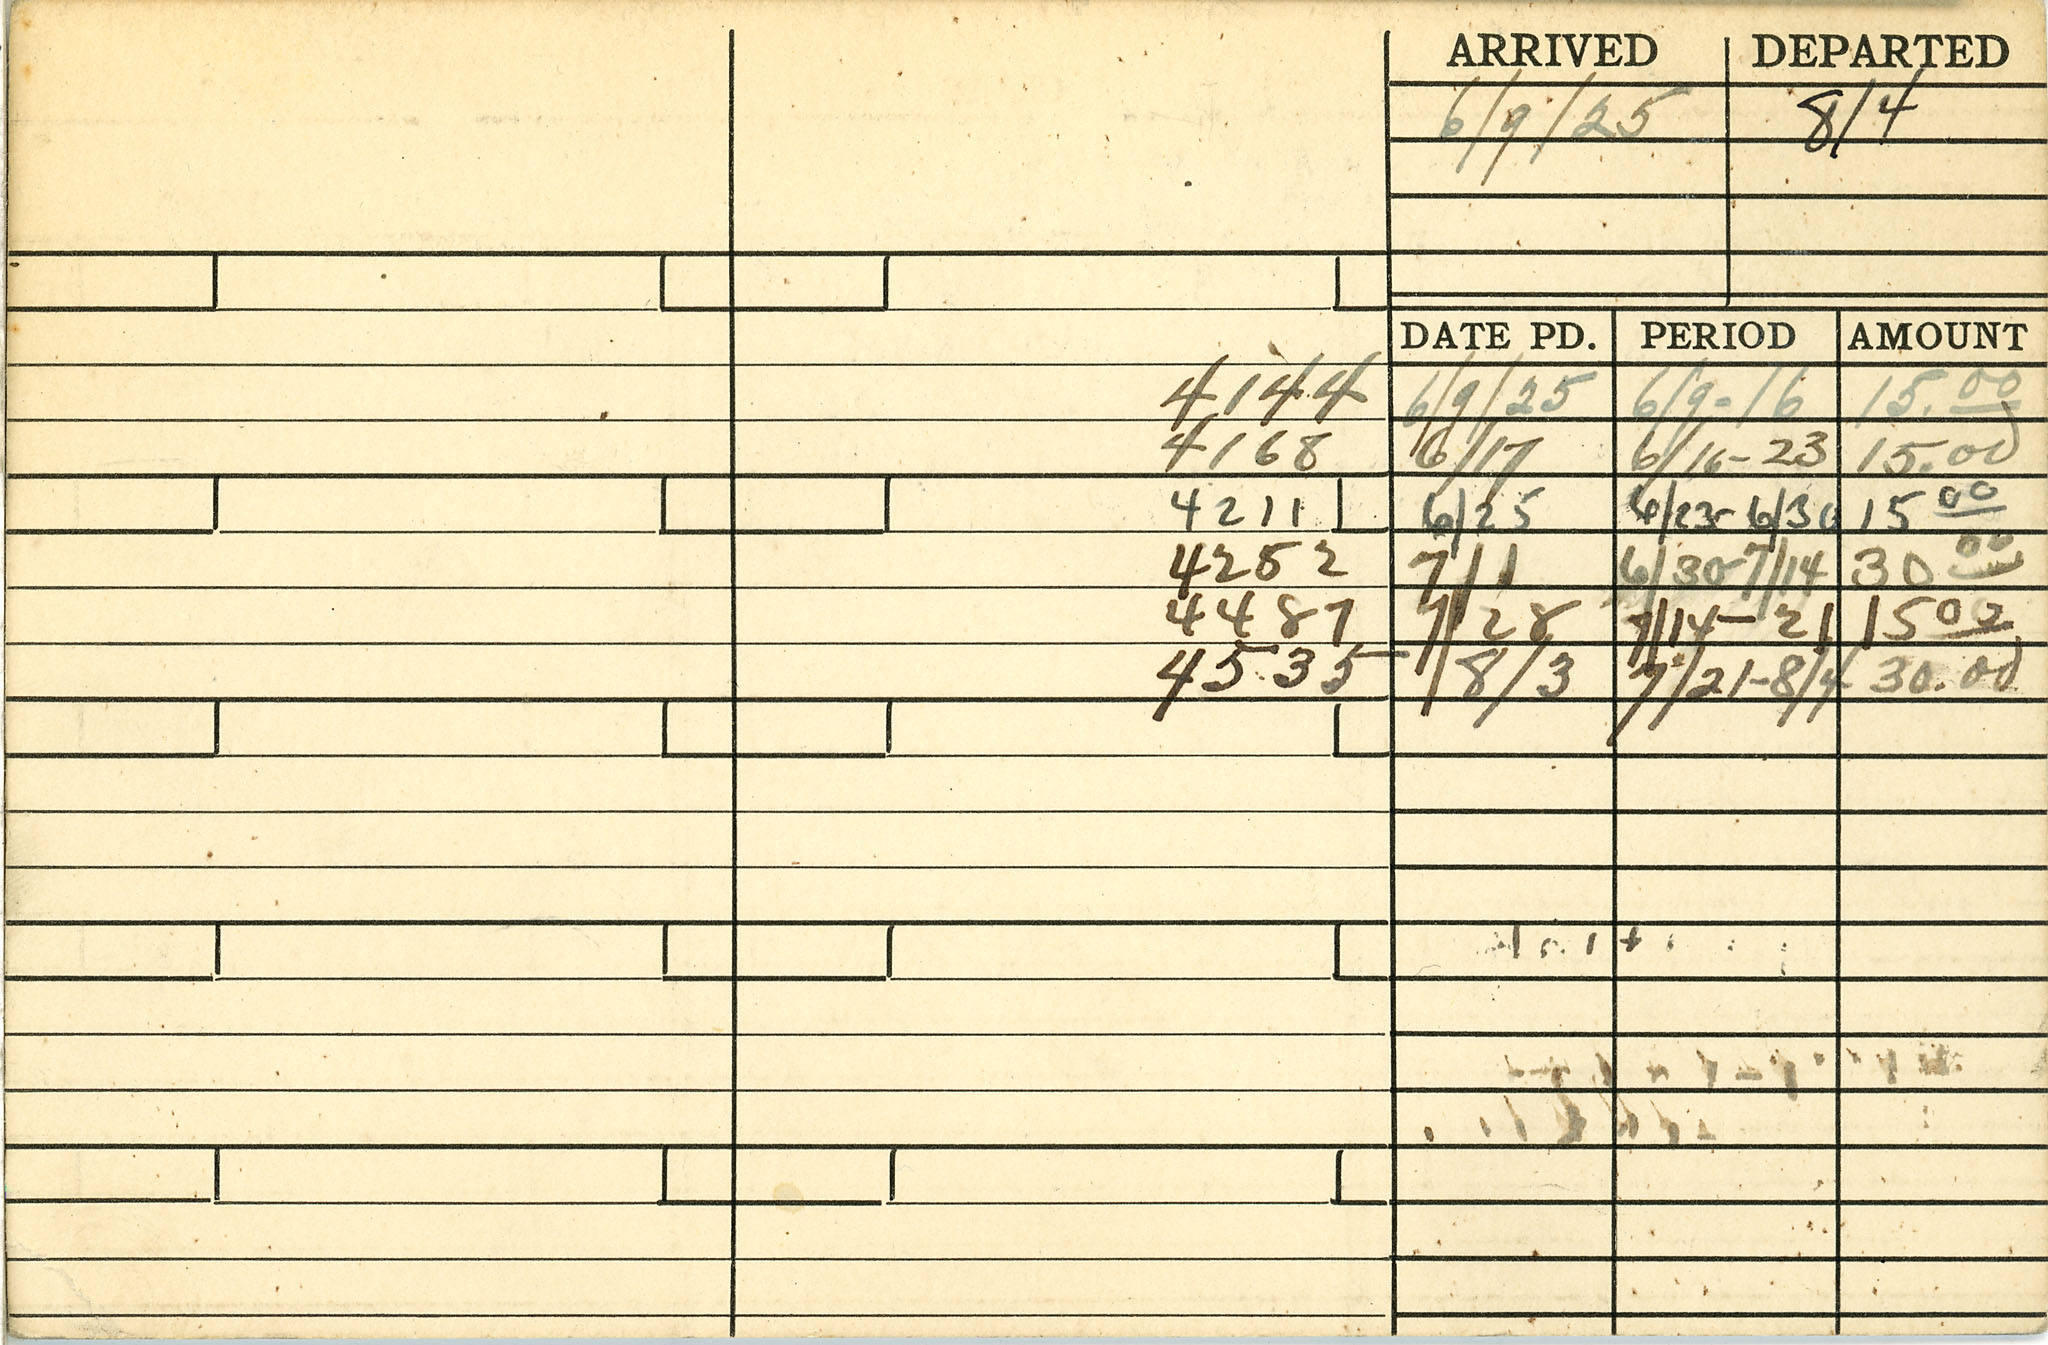 ARRIVED DEPARTED
6/9/25 8/4
DATE PD. PERIOD AMOUNT
4144 6/9/25 6/9-16 15.00
4168 6/17 6/16-23 15.00
4211 6/25 6/23-6/30 15 00
4252 7/1 6/30-7/14 30 00
4487 7/28 7/14-21 15 00
4535 8/3 7/21-8/4 30.00